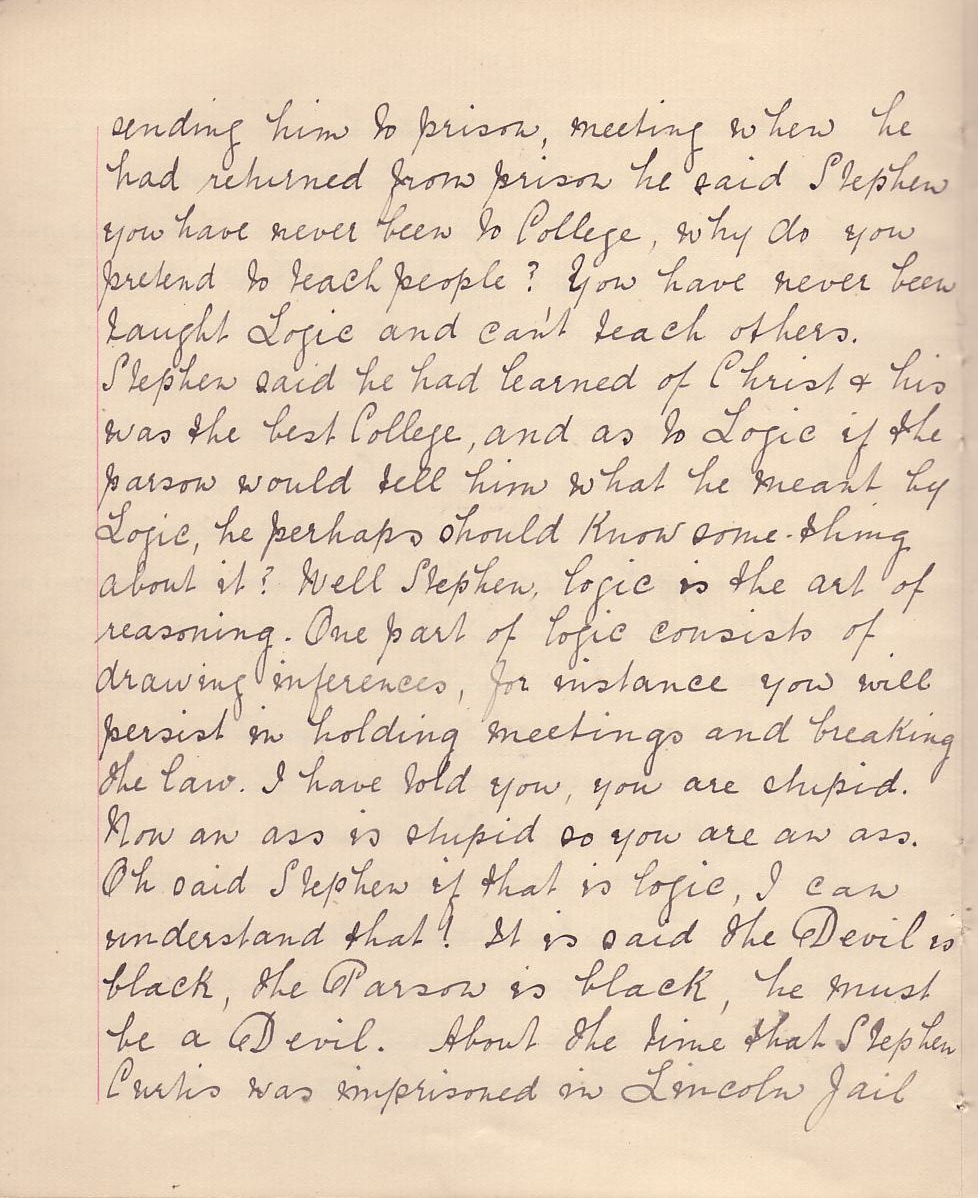 sending him to prison, meeting when he
had returned from prison he said Stephen
you have never been to College, why do you
pretend to teach people? You have never been
taught Logic and can't teach others.
Stephen said he had learned of Christ & his
was the best College, and as to Logic if the
parson would tell him what he meant by
Logic, he perhaps should know some-thing
about it? Well Stephen, logic is the art of
reasoning. One part of logic consists of
drawing inferences, for instance you will
persist in holding meetings and breaking
the law. I have told you, you are stupid.
Now an ass is stupid so you are an ass.
Oh said Stephen if that is logic, I can
understand that! It is said the Devil is
black, the Parson is black, he must
be a Devil. About the time that Stephen
Curtis was imprisoned in Lincoln Jail